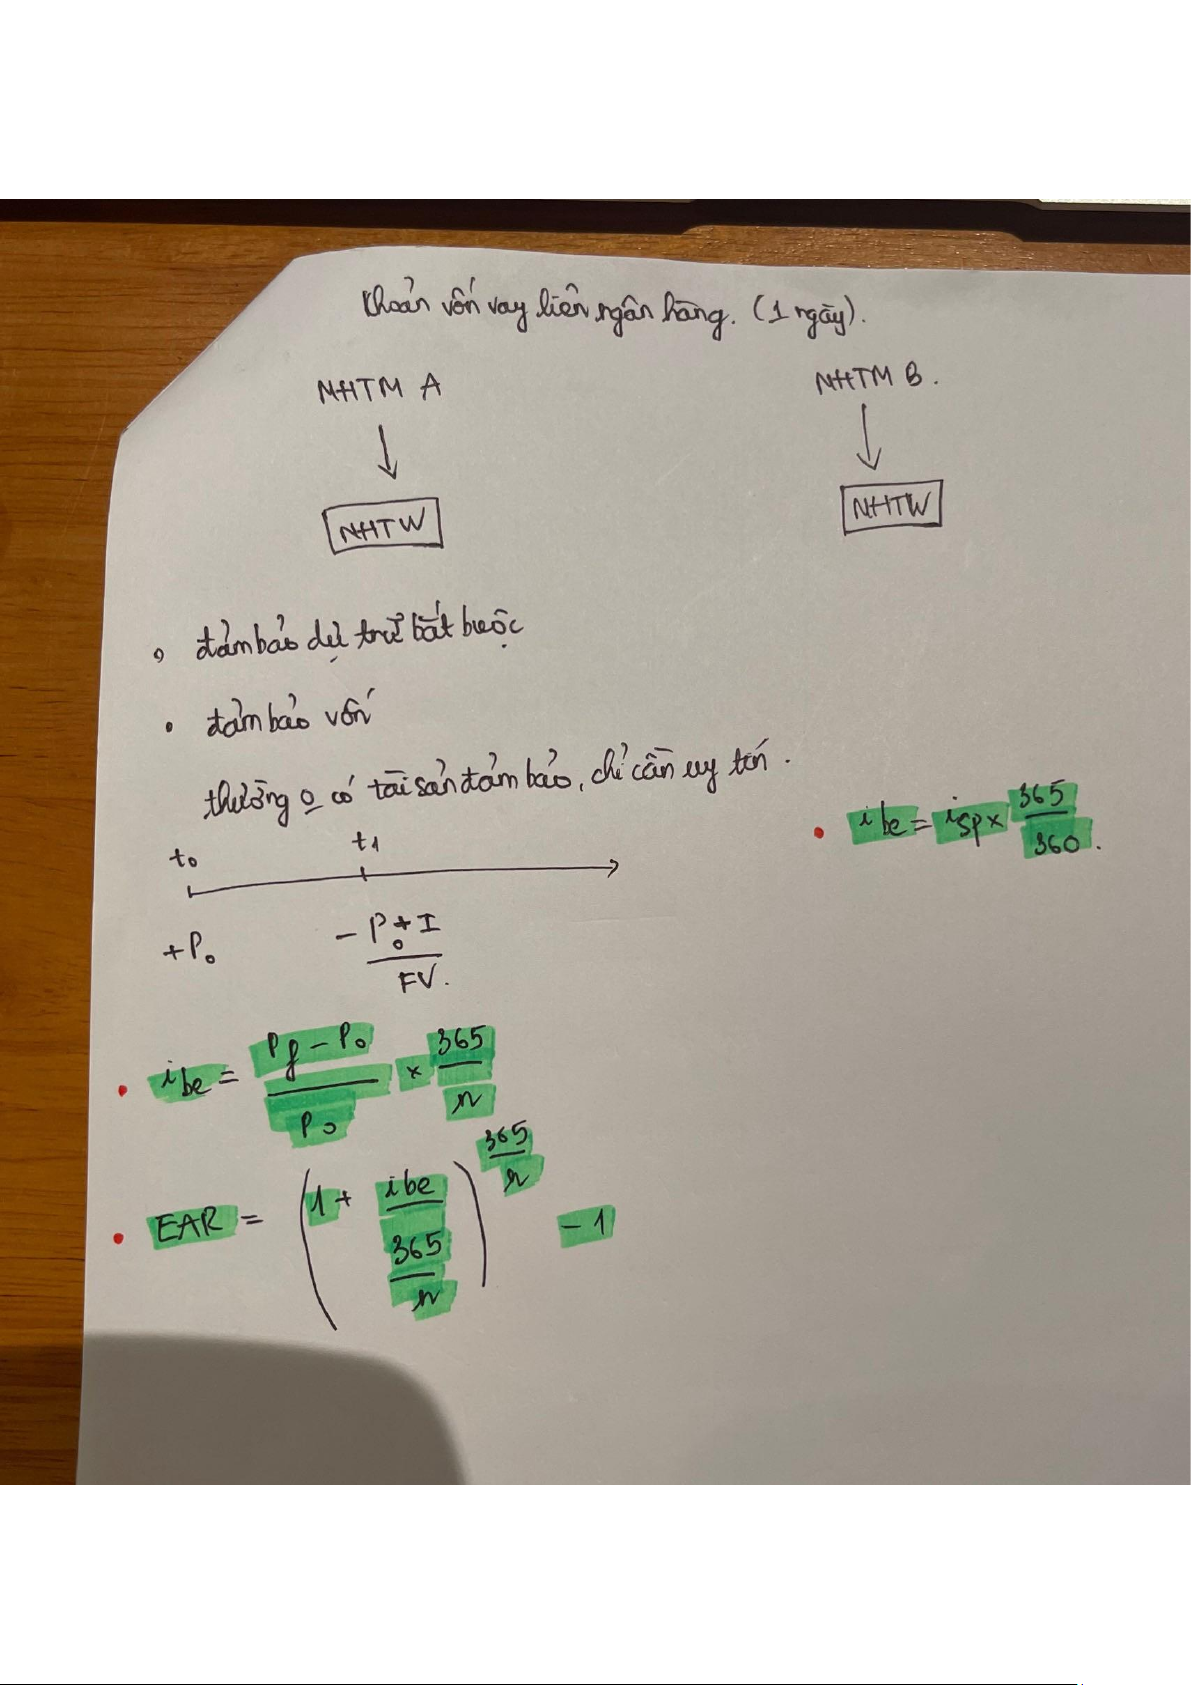 Khoản vốn vay liên ngân hàng. (1 ngày).
NHTM A
NHTM B.
NHTW
NHTW
đảm bảo dự trữ bắt buộc
• đảm bảo vốn
thường o có tài sản đảm bảo, chỉ cần uy tín.
• i be = i sp x 365/360.
t0 t1
+P0 - P0 + I
FV.
• i be = Pf - P0 / P0 x 365/n
• EAR = (1 + i be / 365/n) 365/n - 1